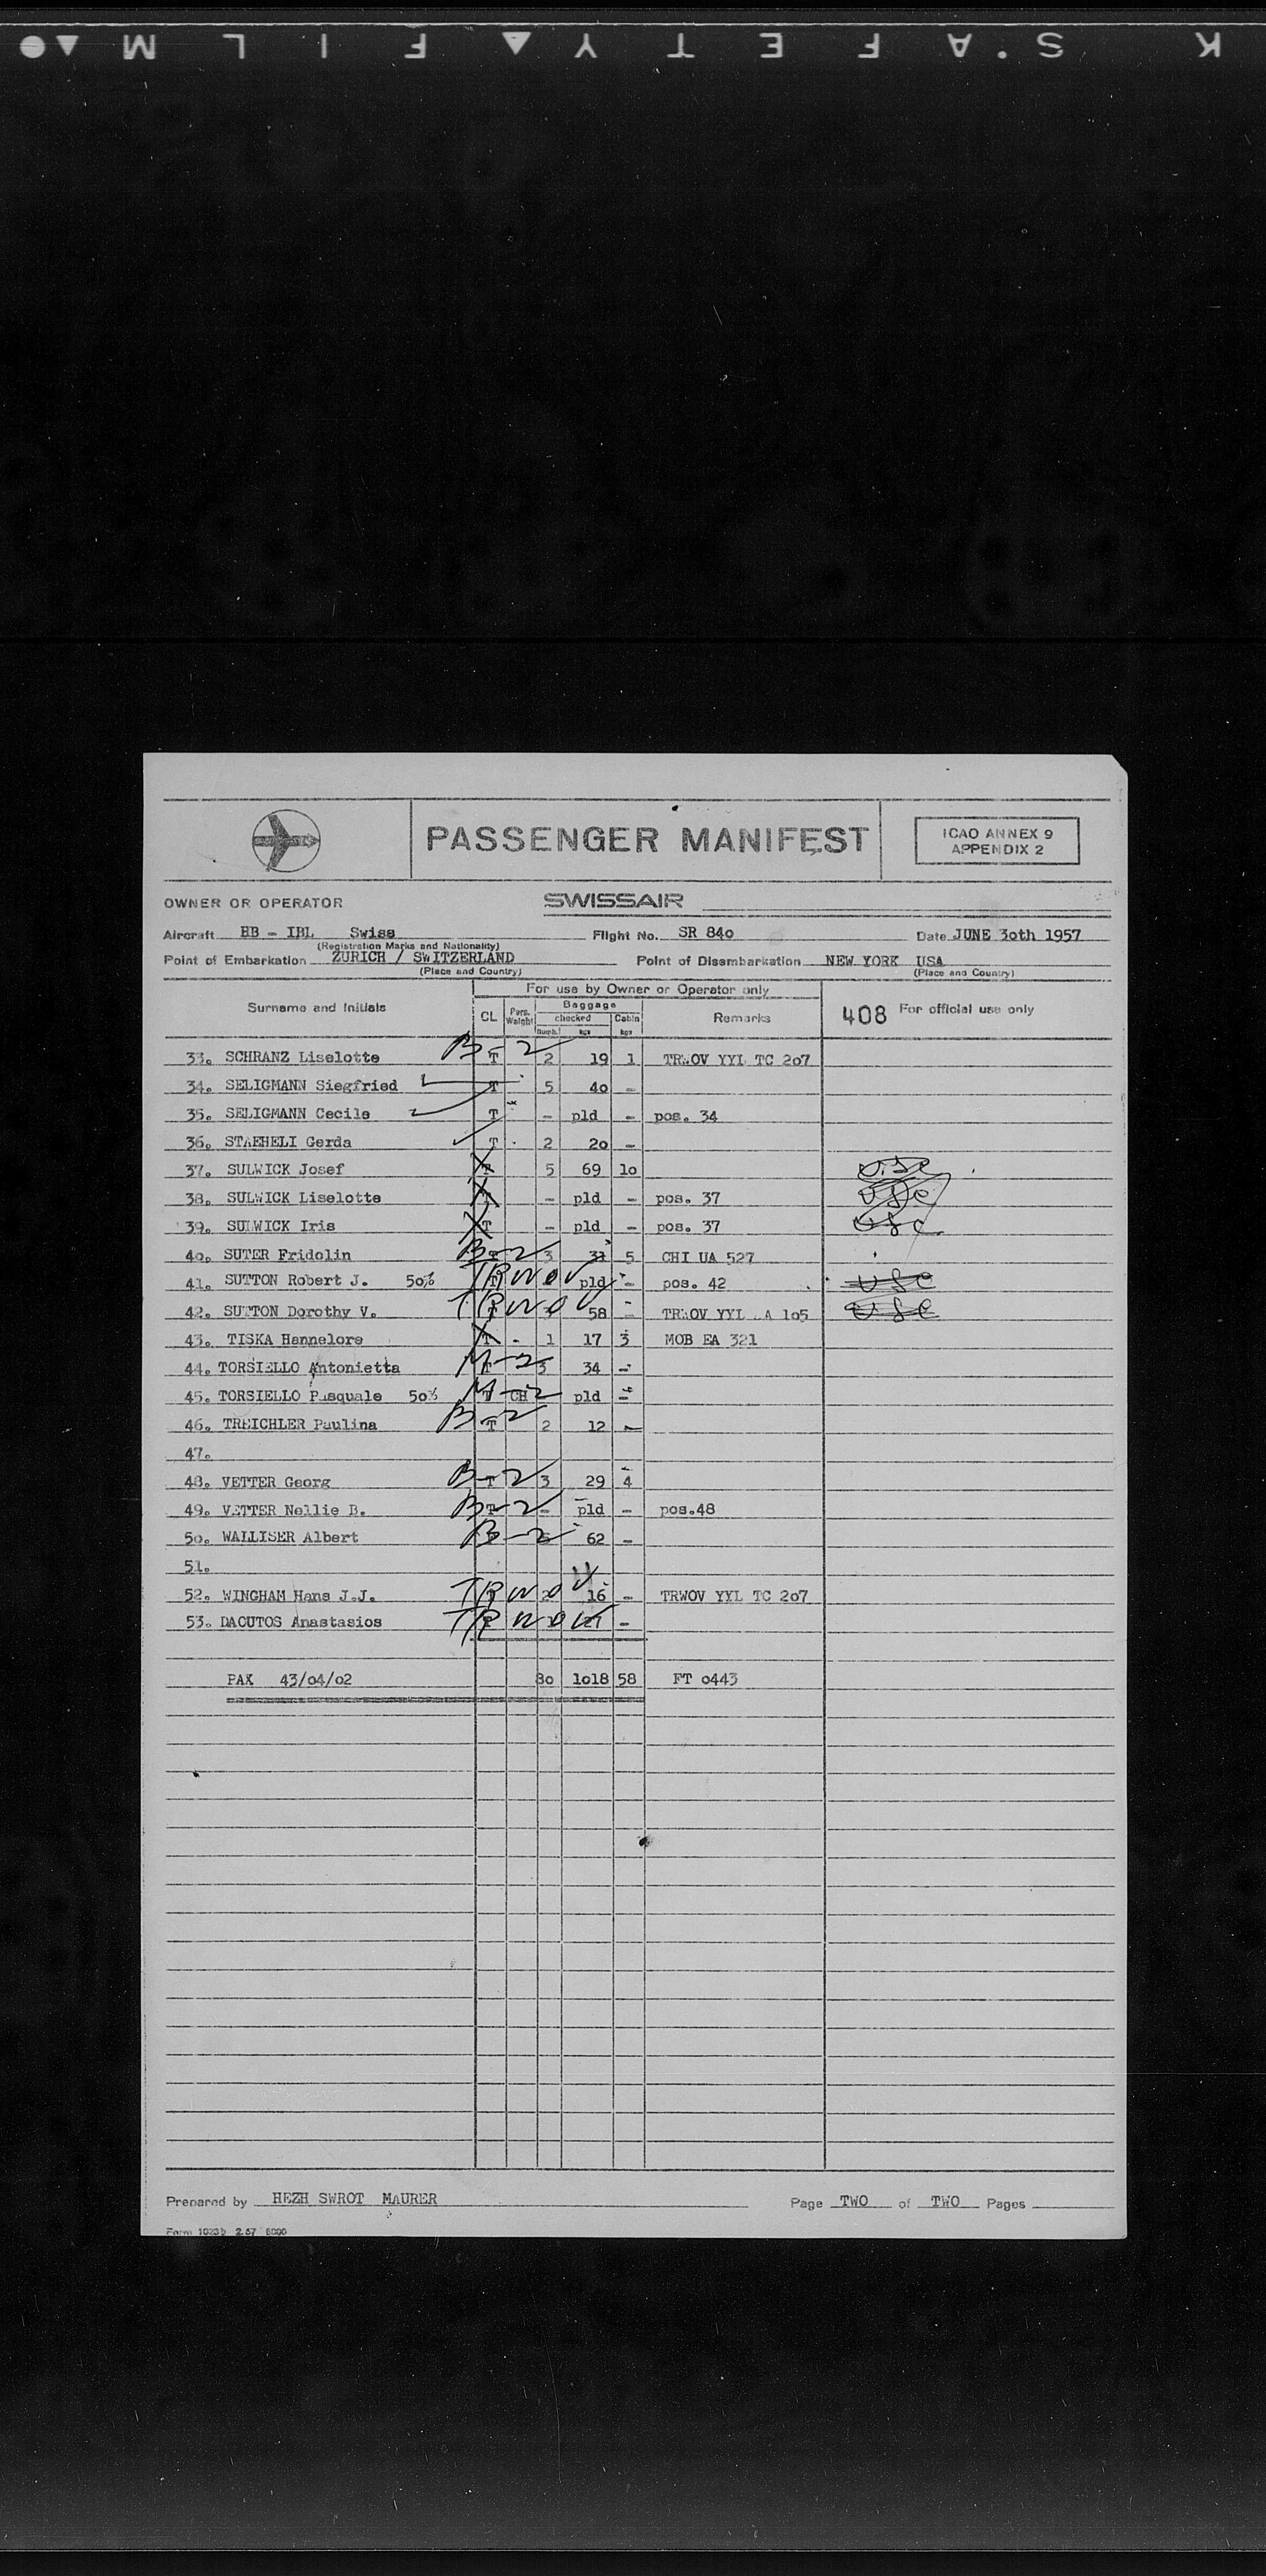 K S'AFETY FILM
PASSENGER MANIFEST
ICAO ANNEX 9
APPENDIX 2
OWNER OR OPERATOR SWISSAIR
Aircraft HB - IBL Swiss Flight No. SR 840 Date JUNE 30th 1957
(Registration Marks and Nationality)
Point of Embarkation ZURICH / SWITZERLAND Point of Disembarkation NEW YORK USA
(Place and Country) (Place and Country)
For use by Owner or Operator only
Surname and Initials CL Pers. Weight Baggage checked Numb. kgs Cabin kgs Remarks 408 For official use only
33. SCHRANZ Liselotte B-2 T 2 19 1 TRWOV YYL TC 207
34. SELIGMANN Siegfried T 5 40 -
35. SELIGMANN Cecile T - pld - pos. 34
36. STAEHELI Gerda T 2 20 -
37. SULWICK Josef T 5 69 10 USC
38. SULWICK Liselotte T - pld - pos. 37 USC
39. SULWICK Iris T - pld - pos. 37 USC
40. SUTER Fridolin B-2 T 3 31 5 CHI UA 527
41. SUTTON Robert J. 50% TRWOV pld - pos. 42 USC
42. SUTTON Dorothy V. TRWOV 58 - TRWOV YYL A 105 USC
43. TISKA Hannelore T - 1 17 3 MOB EA 321
44. TORSIELLO Antonietta M-2 T 3 34 -
45. TORSIELLO Pasquale 50% M-2 T CH pld -
46. TREICHLER Paulina B-2 T 2 12 -
47.
48. VETTER Georg B-2 T 3 29 4
49. VETTER Nellie B. B-2 T - pld - pos.48
50. WALLISER Albert B-2 62 -
51.
52. WINGHAM Hans J.J. TRWOV 2 16 - TRWOV YYL TC 207
53. DACUTOS Anastasios TRWOV 21 -
PAX 43/04/02 80 1018 58 FT 0443
Prepared by HEZH SWROT MAURER Page TWO of TWO Pages
Form 1023b 2.57 5000